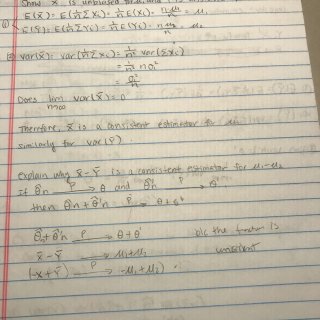 Show X̄ is unbiased for μ₁ and
① E(X̄) = E(1/n ΣXᵢ) = 1/n ΣE(Xᵢ) = nμ₁/n = μ₁
E(Ȳ) = E(1/n ΣYᵢ) = 1/n ΣE(Yᵢ) = nμ₂/n = μ₂
② var(X̄) = var(1/n ΣXᵢ) = 1/n² var(ΣXᵢ)
= 1/n² nσ²
= σ²/n
Does lim n→∞ var(X̄) = 0
Therefore, X̄ is a consistent estimator for μ₁
similarly for var(Ȳ).
Explain why X̄ - Ȳ is a consistent estimator for μ₁-μ₂
If θ̂n →p θ and θ̂'n →p θ'
then θ̂n + θ̂'n →p θ+θ'
θ̂n + θ̂'n →p θ+θ' b/c the function is
X̄ - Ȳ → μ₁+μ₂
(-X+Ȳ) →p -μ₁+μ₂).